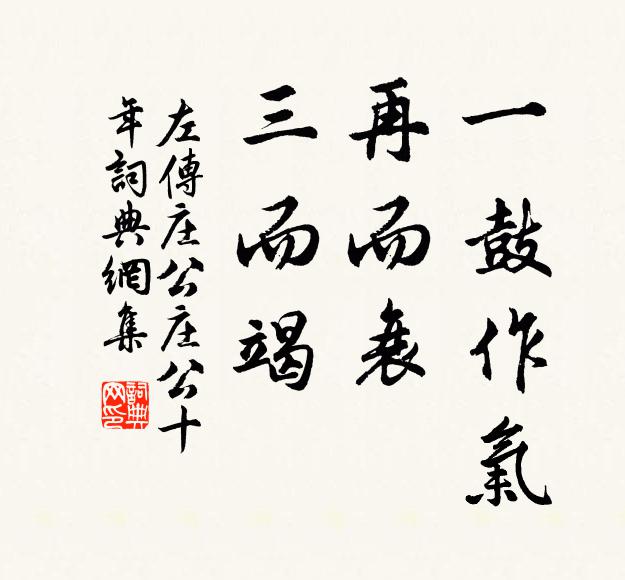 一鼓作氣
再而衰
三而竭
左傳庄公庄公十
年詞典網集
詞典
网印